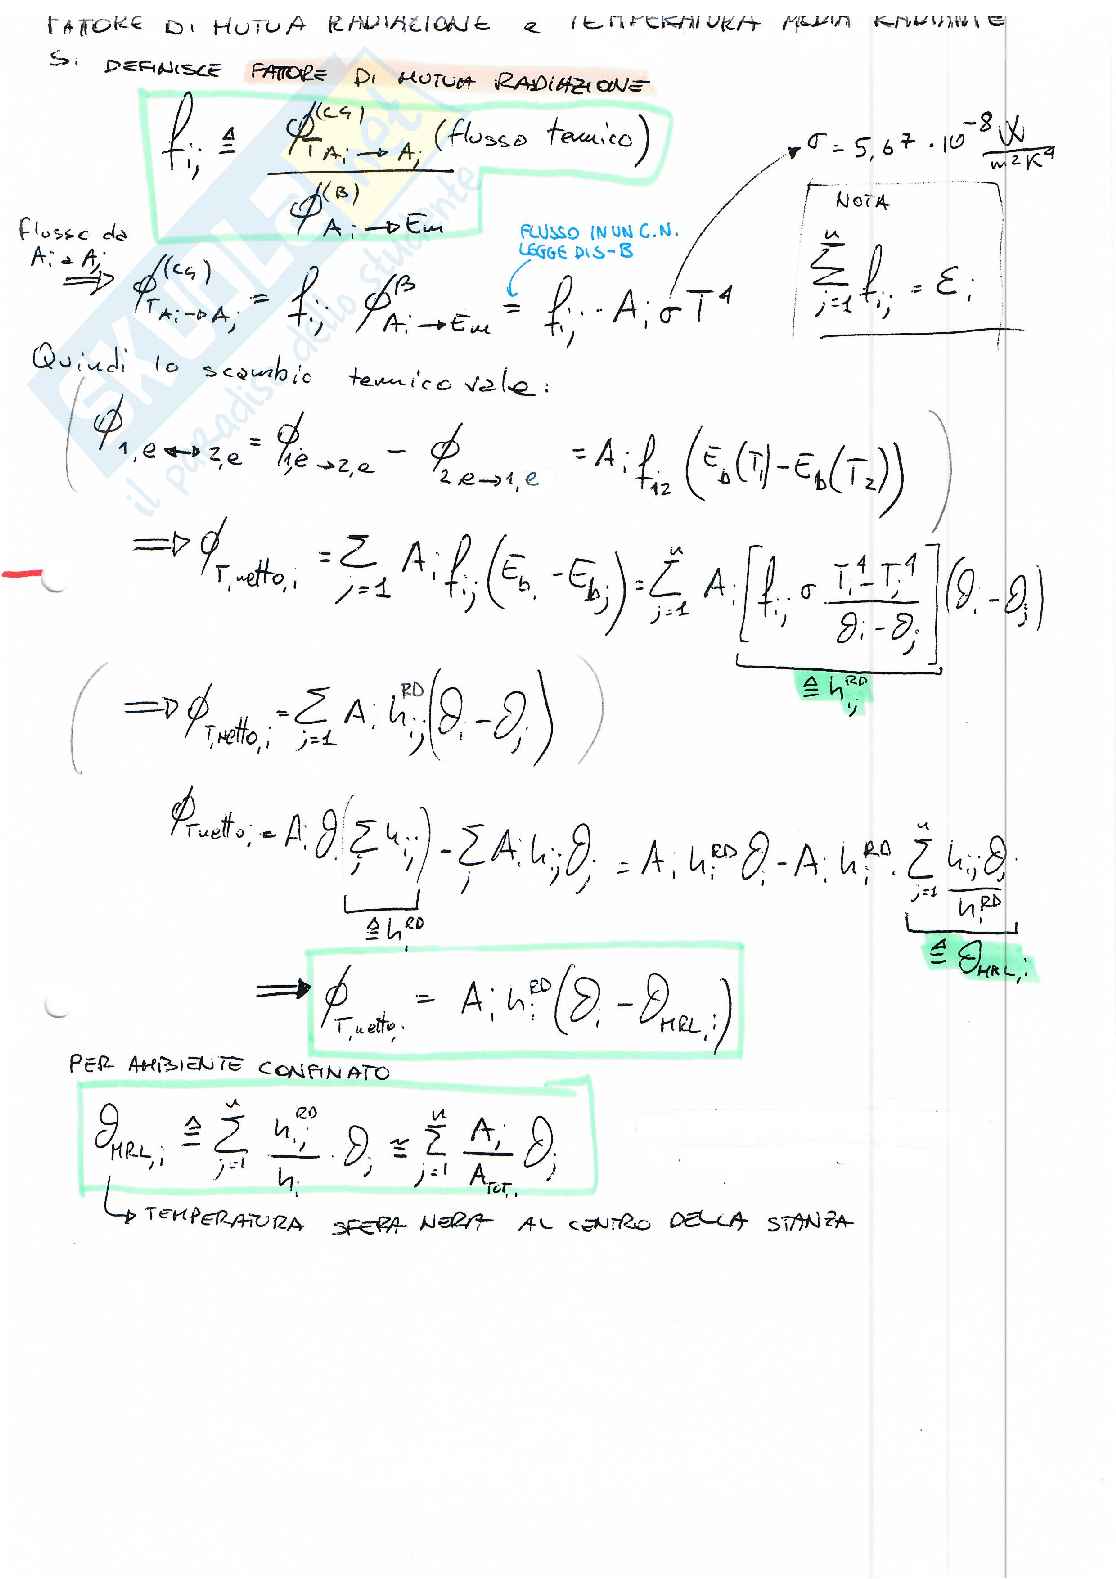 FATTORE DI MUTUA RADIAZIONE e TEMPERATURA MEDIA RADIANTE
Si DEFINISCE FATTORE DI MUTUA RADIAZIONE
f_ij ≜ ϕ_T Ai→Aj^(CG) (flusso termico) / ϕ_Ai→Em^(B)
σ = 5,67 · 10^-8 W/m²K⁴
NOTA
∑_{j=1}^{n} f_ij = ε_i
flusso da Ai a Aj
FLUSSO IN UN C.N.
LEGGE DI S-B
⇒ ϕ_T Ai→Aj^(CG) = f_ij ϕ_Ai→Em^B = f_ij · A_i σ T⁴
Quindi lo scambio termico vale:
(ϕ_1,e↔2,e = ϕ_1,e→2,e - ϕ_2,e→1,e = A_i f_12 (E_b(T_1) - E_b(T_2)))
⇒ ϕ_T,netto,i = ∑_{j=1} A_i f_ij (E_bi - E_bj) = ∑_{j=1}^{n} A_i [f_ij σ (T_i⁴ - T_j⁴)/(ϑ_i - ϑ_j)] (ϑ_i - ϑ_j)
≜ h_ij^RD
(⇒ ϕ_T,netto,i = ∑_{j=1} A_i h_ij^RD (ϑ_i - ϑ_j))
ϕ_T netto,i = A_i ϑ_i (∑_j h_ij) - ∑_j A_i h_ij ϑ_j = A_i h_i^RD ϑ_i - A_i h_i^RD · ∑_{j=1}^{n} h_ij ϑ_j / h_i^RD
≜ h_i^RD
≜ ϑ_MRL,i
⇒ ϕ_T,netto,i = A_i h_i^RD (ϑ_i - ϑ_MRL,i)
PER AMBIENTE CONFINATO
ϑ_MRL,i ≜ ∑_{j=1}^{n} h_ij^RD / h_i · ϑ_j ≅ ∑_{j=1}^{n} A_j / A_TOT,i ϑ_j
↳ TEMPERATURA SFERA NERA AL CENTRO DELLA STANZA
SKUOLA.net
il paradiso dello studente